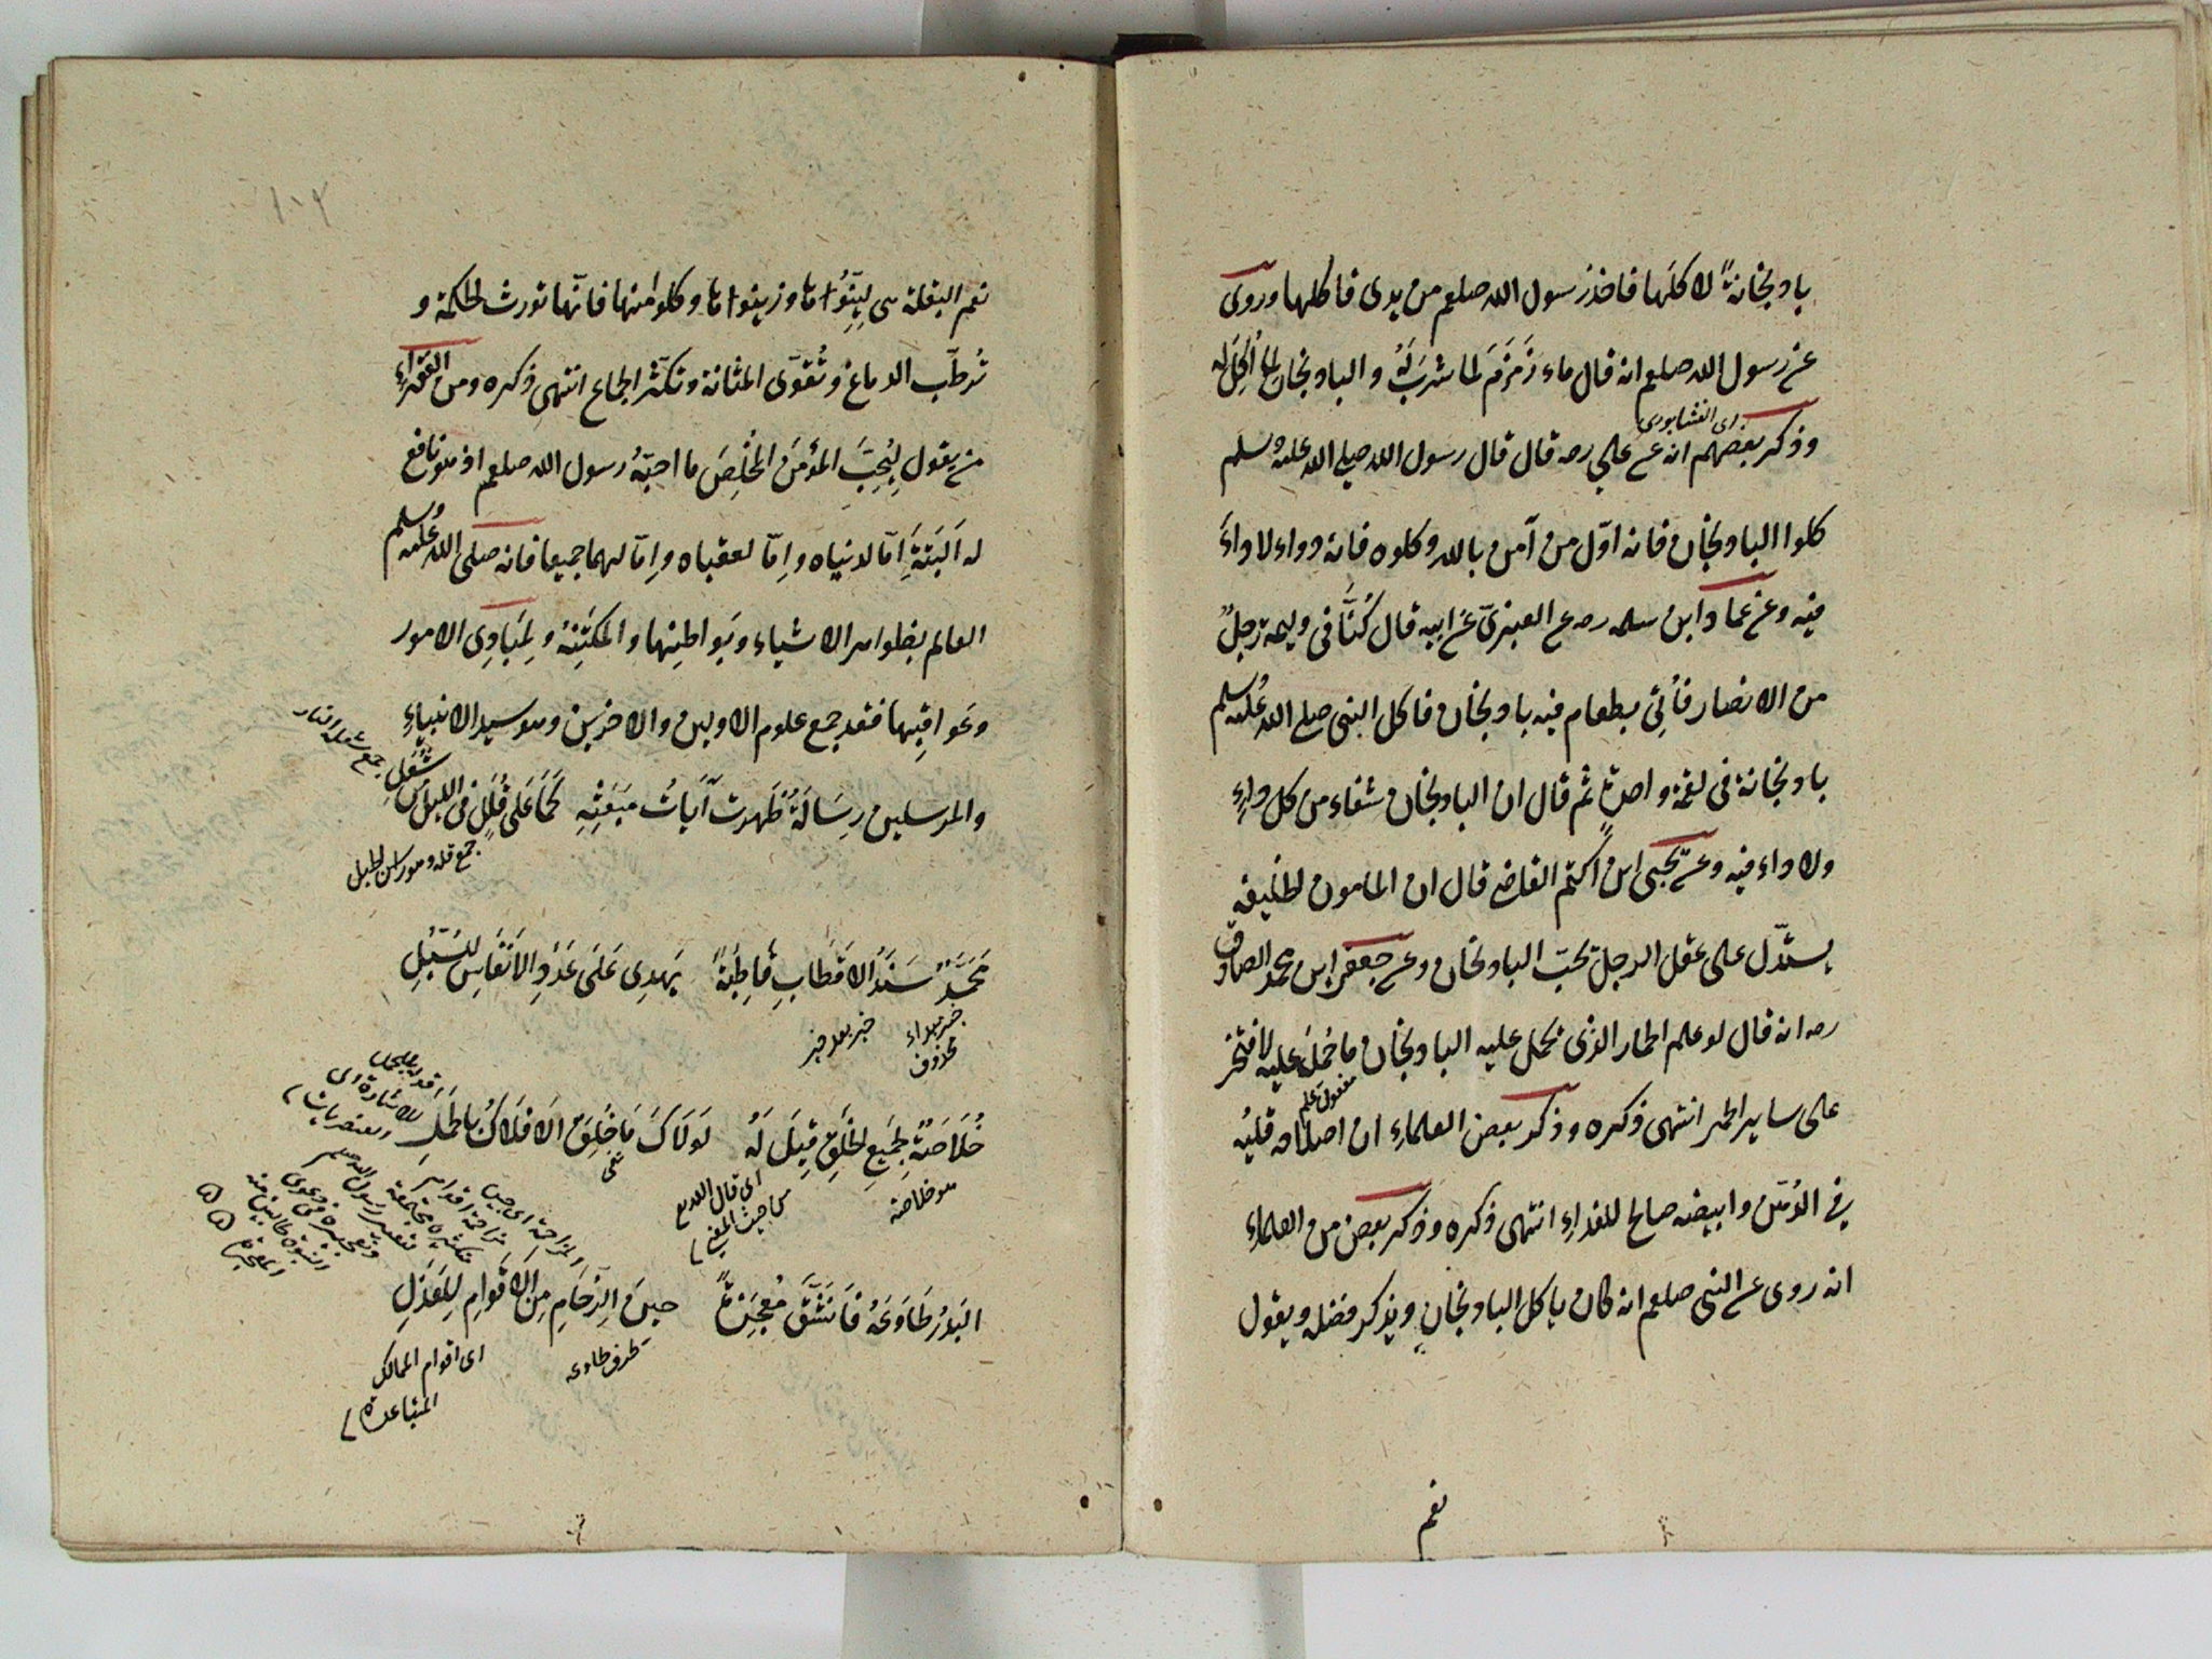 بادنجانةً لاكلَها فاخذ رسول الله صلعم من يدى فاكلها وروى
عن رسول الله صلعم انه قال ماء زَمزَمَ لما شرِبَ لَهُ والبادنجان لما اُكِلَ له
اى النشابورى
وذكر بعضهم انه عن على رضه قال قال رسول الله صلى الله عليه وسلم
كلوا البادنجان فانه اوّل من آمن بالله وكلوه فانه دواء لا داءَ
فيه وعن عماد ابن سلمه رضه عن العنبرىّ عن ابيه قال كُنَّا فى وليمة رجلٍ
من الانصار فأُتِىَ بطعام فيه بادنجان فاكل النبى صلى الله عليه وسلم
بادنجانة فى لقمة واحدةٍ ثم قال ان البادنجان شفاء من كل داءٍ
ولا داء فيه وعن يحيى ابن اكثم القاضى قال ان المامون الخليفه
يستدّل على عقل الرجل بحبّ البادنجان وعن جعفر ابن محمد الصادق
رضه انه قال لو علم الحمار الذى تحمل عليه البادنجان ما حُمِلَ عليه لافتخر
مفعول علم
على ساير الحمر انتهى ذكره وذكر بعض العلماءِ ان اصلاحه قليُه
فى الدُهن وابيضه صالح للغداءِ انتهى ذكره وذكر بعض من العلماءِ
انه روى عن النبى صلعم انه كان ياكل البادنجان ويذكر فضله ويقول
نعم
١٠٢
نعم البقلة هى لِيِّنُوا وزيتوا وكلوا منها فانّها تورث الحكمة و
تُرطّب الدماغ وتُقوّى المثانة وتكثر الجماع انتهى ذكره ومن الفقراءِ
من يقول لِيُحِبَّ المؤمنَ المخْلِصَ ما احبّهُ رسول الله صلعم اذ هو نافع
له اَلبَتةَ امّا لدنياه وامّا لعقباه وامّا لهما جميعا فانه صلى الله عليه وسلم
العالم بظواهر الاشياء وبَواطِنِها والمكتَنِنُهُ ولِمَبَادِى الامور
وعَواقِبِها فقد جمع علوم الاولين والاخرين وهو سيد الانبياءِ
والمرسلين رِسَالَةً ظَهرت آيَاتُ مَبَعَثِهِ كَمَا عَلى قُلَلٍ فى الليل شُعَلِ
جمع شعلة النار
جمع قله وهو راس الجبل
مُحَمّدٌ سَنَدُ الاَقطَابِ قَاطِبةً يَهدِى عَلَى عَدَدِ الاَنفَاسِ للسُبُلِ
خبر مبتداء محذوف
خبر بعد خبر
خُلَاصَةٌ لِجَمِيعِ الخَلقِ قِيلَ لَهُ لَولَاكَ مَا خُلِقَ الاَفلَاكُ بِالجُمَلِ
هو خلاصة
اى قال الله تع
البَدرُ طَاوَعَهُ فَانشَقَّ مُعجِزَةً حِينَ الزِحَامِ مِن الاَقوَامِ لِلعَذَلِ
ظرف طاوعه
اى اقوام الممالك
المتباعدة